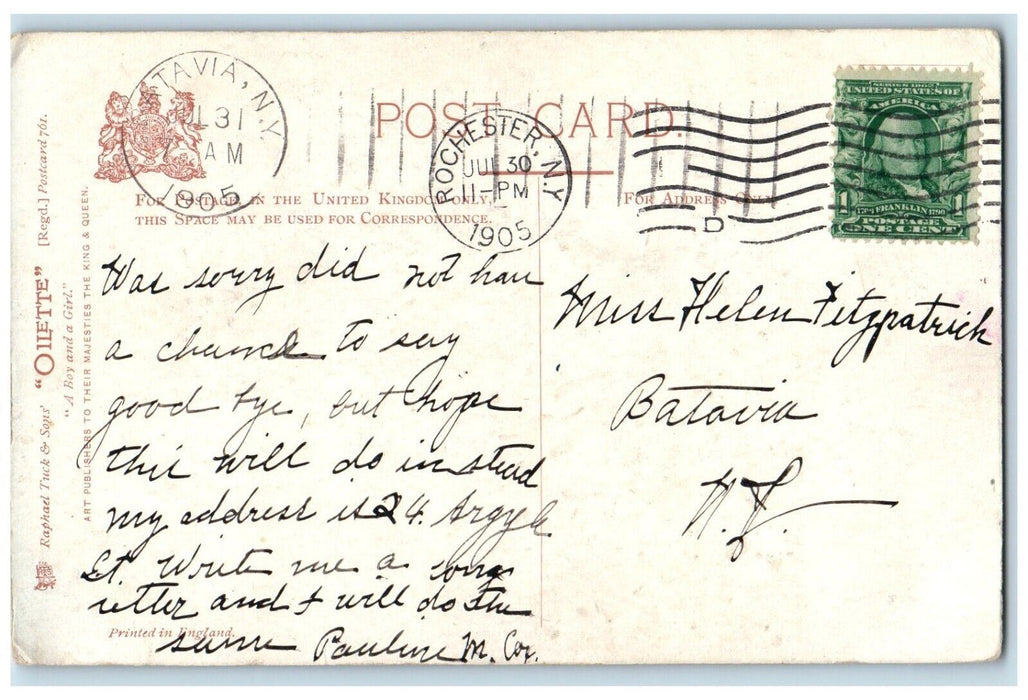 BATAVIA, N.Y.
JUL 31
AM
1905
POST CARD.
ROCHESTER, N.Y.
JUL 30
11-PM
1905
D
SERIES 1902
UNITED STATES OF
AMERICA
1 1706 FRANKLIN 1790 1
POSTAGE
ONE CENT
FOR POSTAGE IN THE UNITED KINGDOM ONLY,
THIS SPACE MAY BE USED FOR CORRESPONDENCE.
FOR ADDRESS ONLY.
Raphael Tuck & Sons' "OILETTE" [Regd.] Postcard 761.
"A Boy and a Girl."
ART PUBLISHERS TO THEIR MAJESTIES THE KING & QUEEN.
Was sorry did not have
a chance to say
good bye, but hope
this will do instead
my address is 24 Argyle
St. Write me a long
letter and I will do the
same Pauline M. Cox.
Printed in England.
Miss Helen Fitzpatrick
Batavia
N.Y.